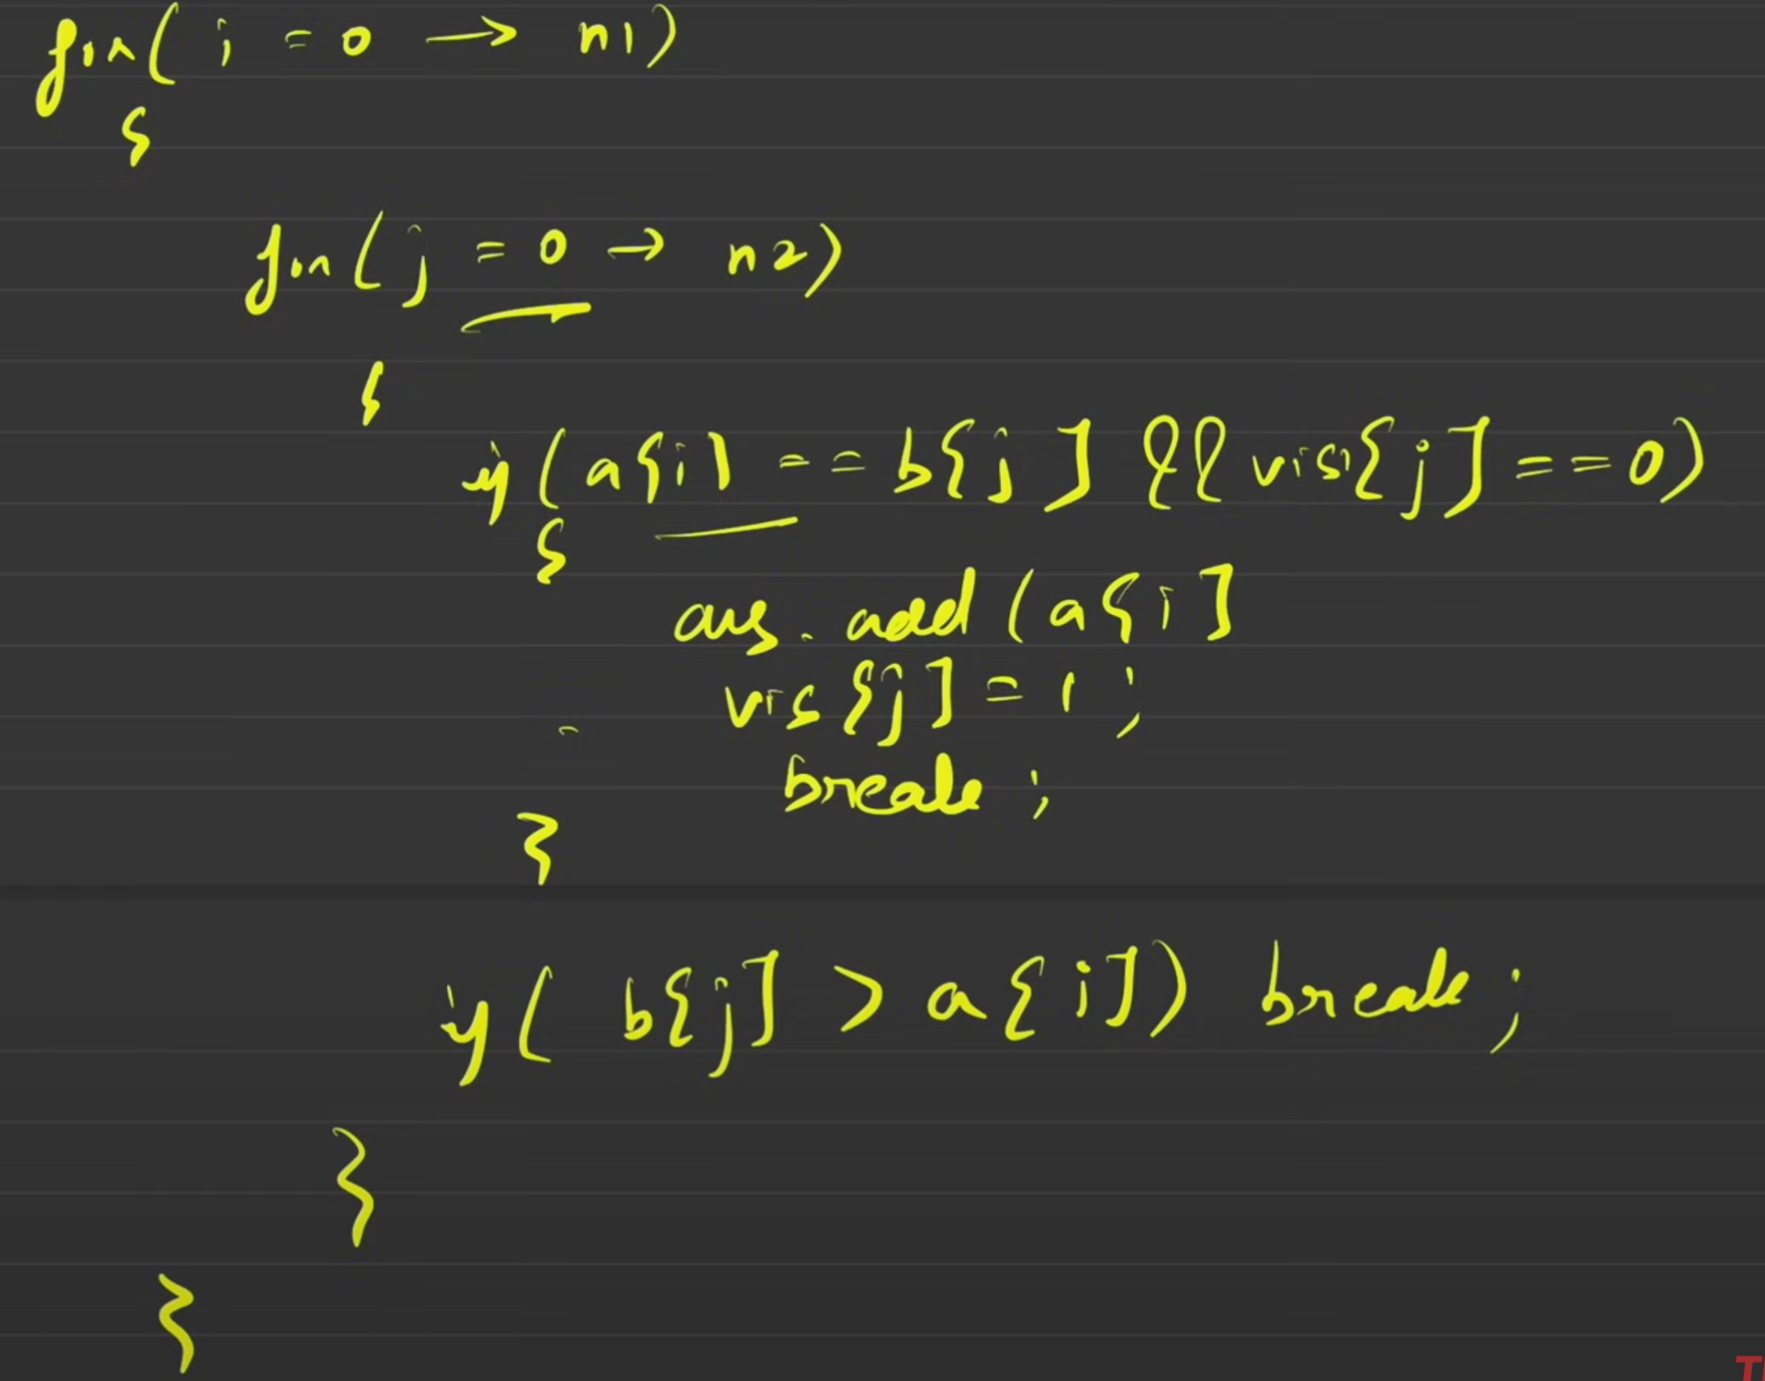 for( i = 0 → n1)
{
for( j = 0 → n2)
{
if( a[i] == b[j] && vis[j] == 0)
{
ans. add (a[i]
vis[j] = 1 ;
break ;
}
if( b[j] > a[i]) break ;
}
}